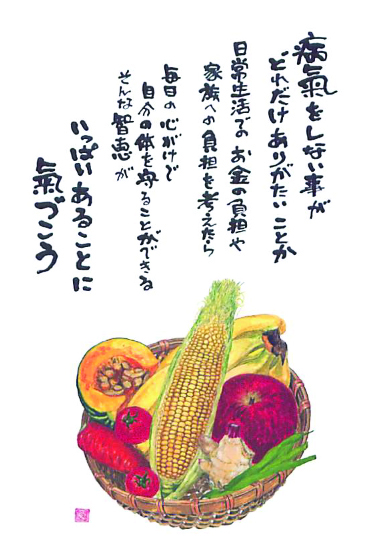 病氣をしない事が
どれだけありがたいことか
日常生活でのお金の負担や
家族への負担を考えたら
毎日の心がけで
自分の体を守ることができる
そんな智恵が
いっぱいあることに
氣づこう